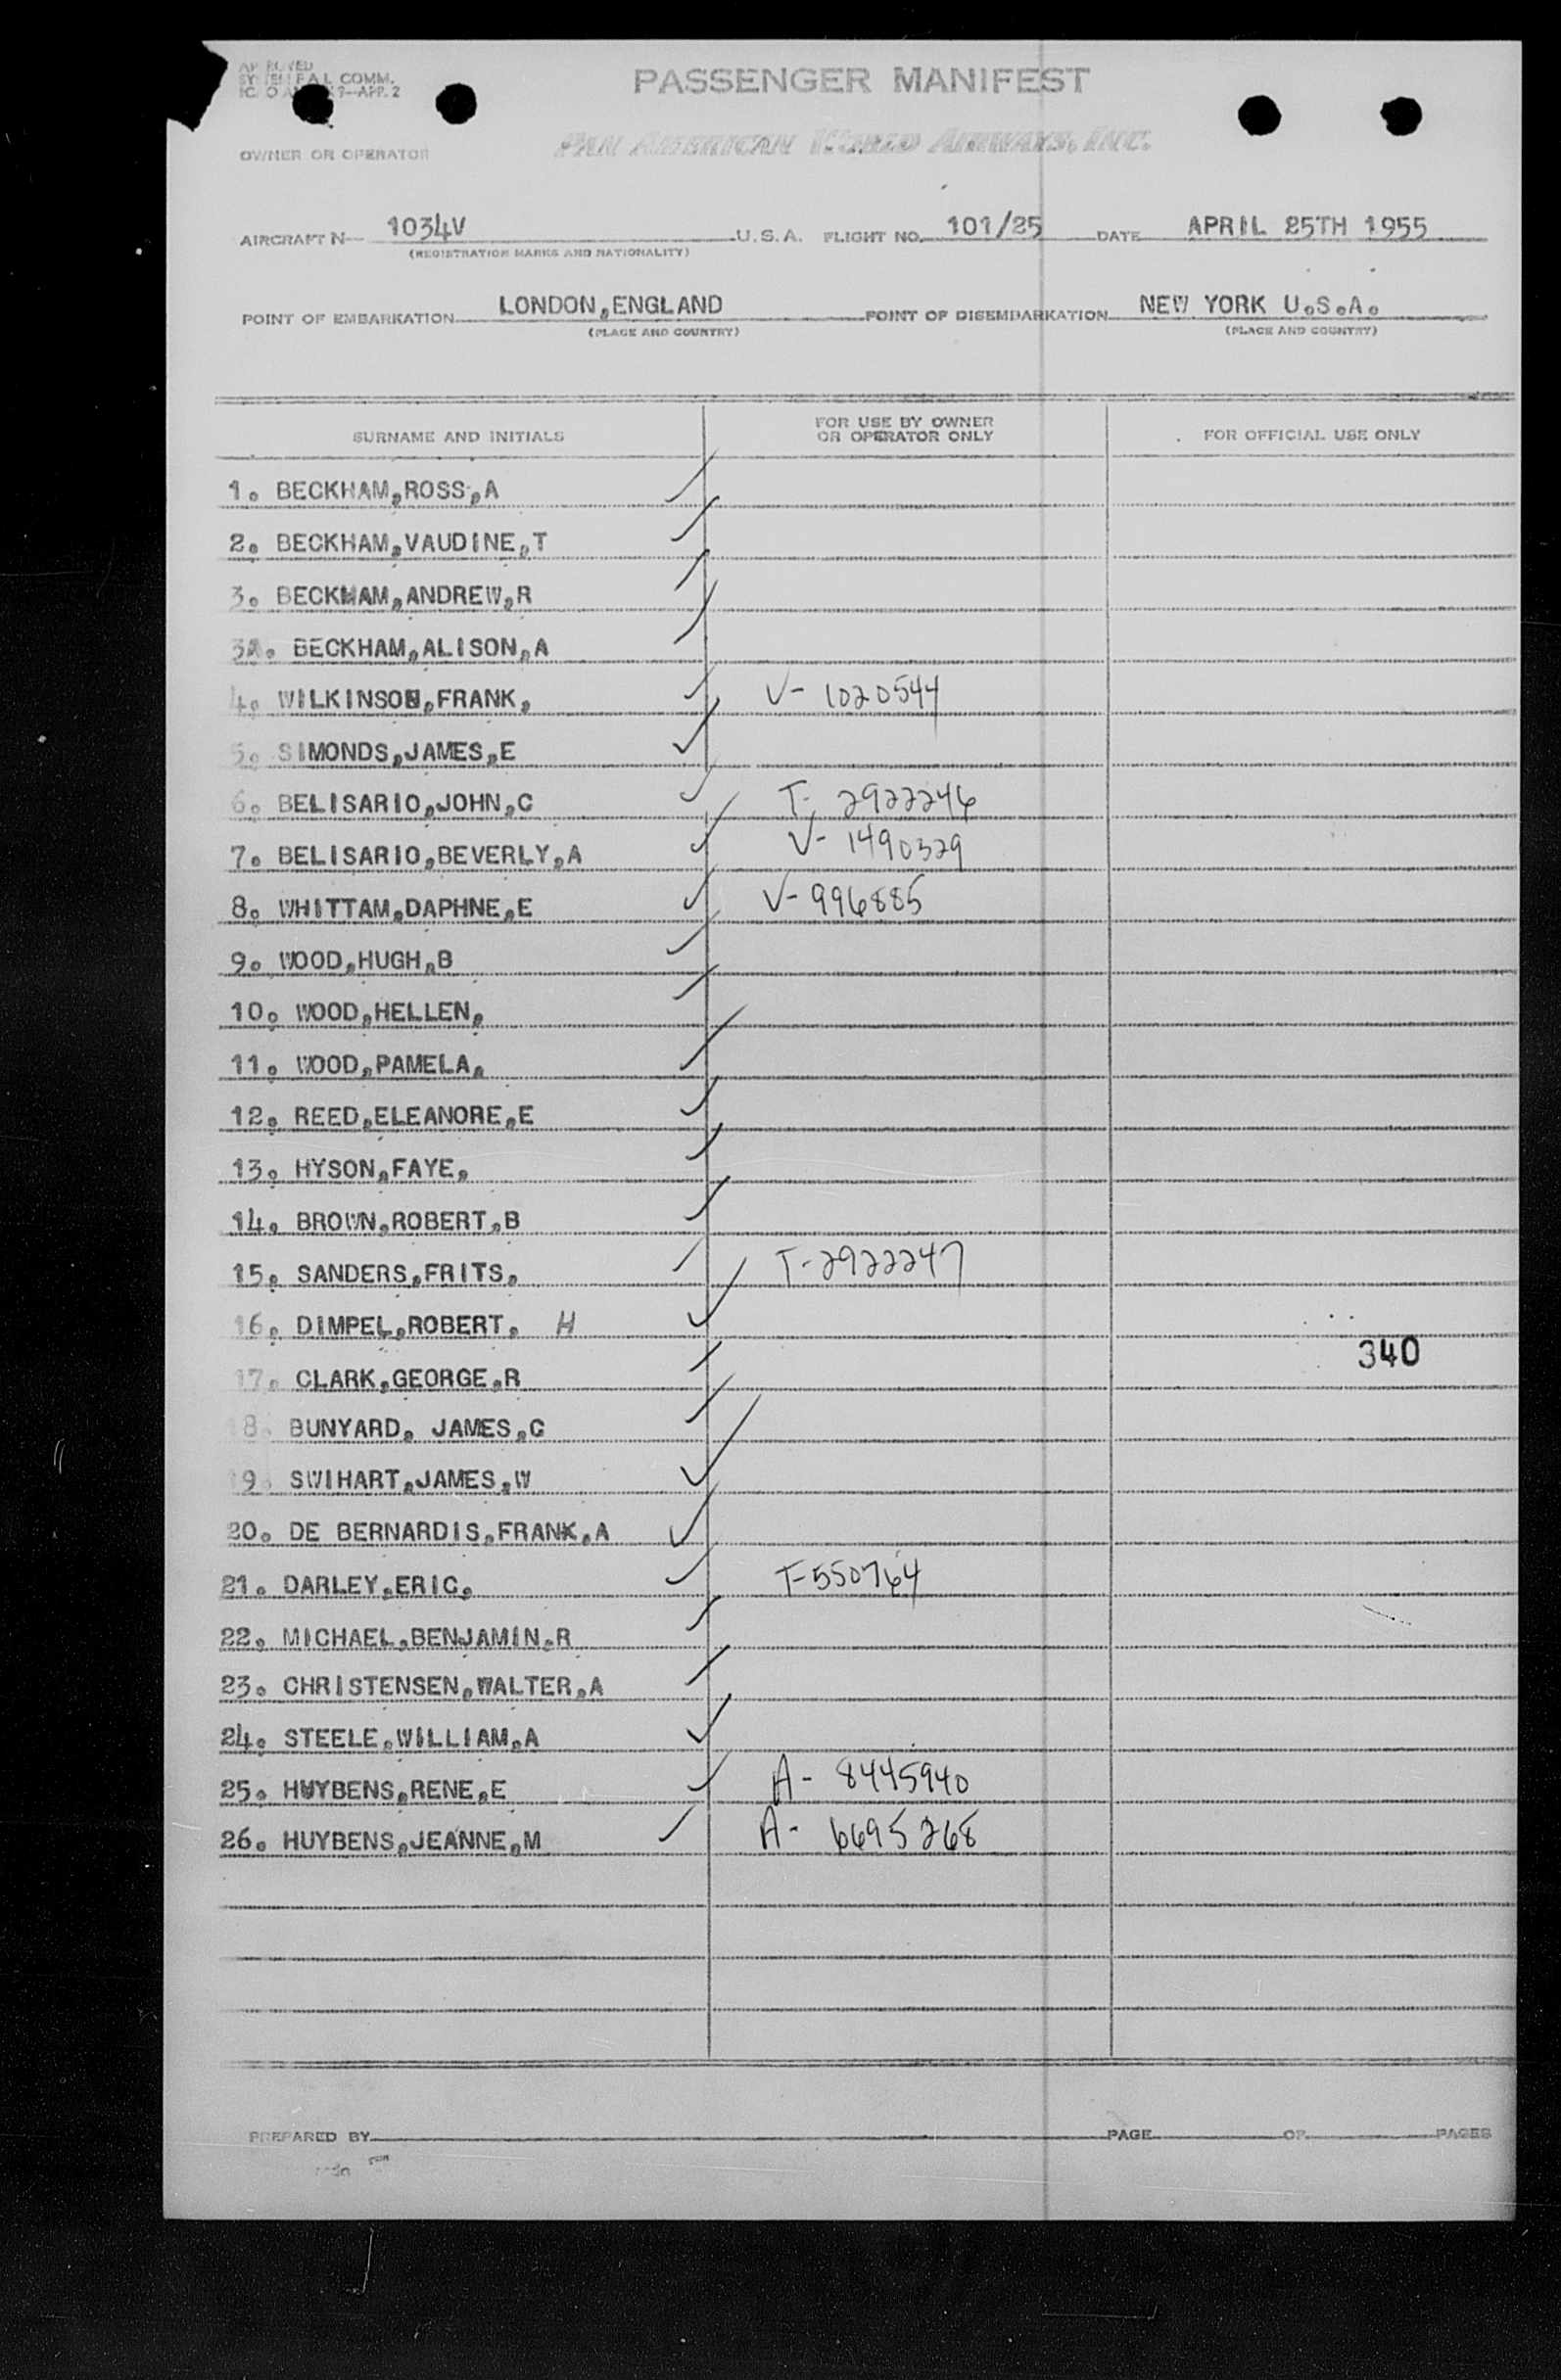 APPROVED
SYSTEM FAL COMM.
ICAO ANNEX 9-APP. 2
PASSENGER MANIFEST
OWNER OR OPERATOR PAN AMERICAN WORLD AIRWAYS, INC.
AIRCRAFT N- 1034V U.S.A. FLIGHT NO. 101/25 DATE APRIL 25TH 1955
(REGISTRATION MARKS AND NATIONALITY)
POINT OF EMBARKATION LONDON,ENGLAND POINT OF DISEMBARKATION NEW YORK U.S.A.
(PLACE AND COUNTRY) (PLACE AND COUNTRY)
SURNAME AND INITIALS FOR USE BY OWNER OR OPERATOR ONLY FOR OFFICIAL USE ONLY
1. BECKHAM,ROSS,A ✓
2. BECKHAM,VAUDINE,T ✓
3. BECKHAM,ANDREW,R ✓
3A. BECKHAM,ALISON,A ✓
4. WILKINSON,FRANK, ✓ V- 1020544
5. SIMONDS,JAMES,E ✓
6. BELISARIO,JOHN,C ✓ T- 2922246
7. BELISARIO,BEVERLY,A ✓ V- 1490329
8. WHITTAM,DAPHNE,E ✓ V-996885
9. WOOD,HUGH,B ✓
10. WOOD,HELLEN, ✓
11. WOOD,PAMELA, ✓
12. REED,ELEANORE,E ✓
13. HYSON,FAYE, ✓
14. BROWN,ROBERT,B ✓
15. SANDERS,FRITS, ✓ T-2922247
16. DIMPEL,ROBERT, H ✓
340
17. CLARK,GEORGE,R ✓
18. BUNYARD, JAMES,C ✓
19. SWIHART,JAMES,W ✓
20. DE BERNARDIS,FRANK,A ✓
21. DARLEY,ERIC, ✓ T-550764
22. MICHAEL,BENJAMIN,R ✓
23. CHRISTENSEN,WALTER,A ✓
24. STEELE,WILLIAM,A ✓
25. HUYBENS,RENE,E ✓ A- 8445940
26. HUYBENS,JEANNE,M ✓ A- 6695268
PREPARED BY PAGE OF PAGES